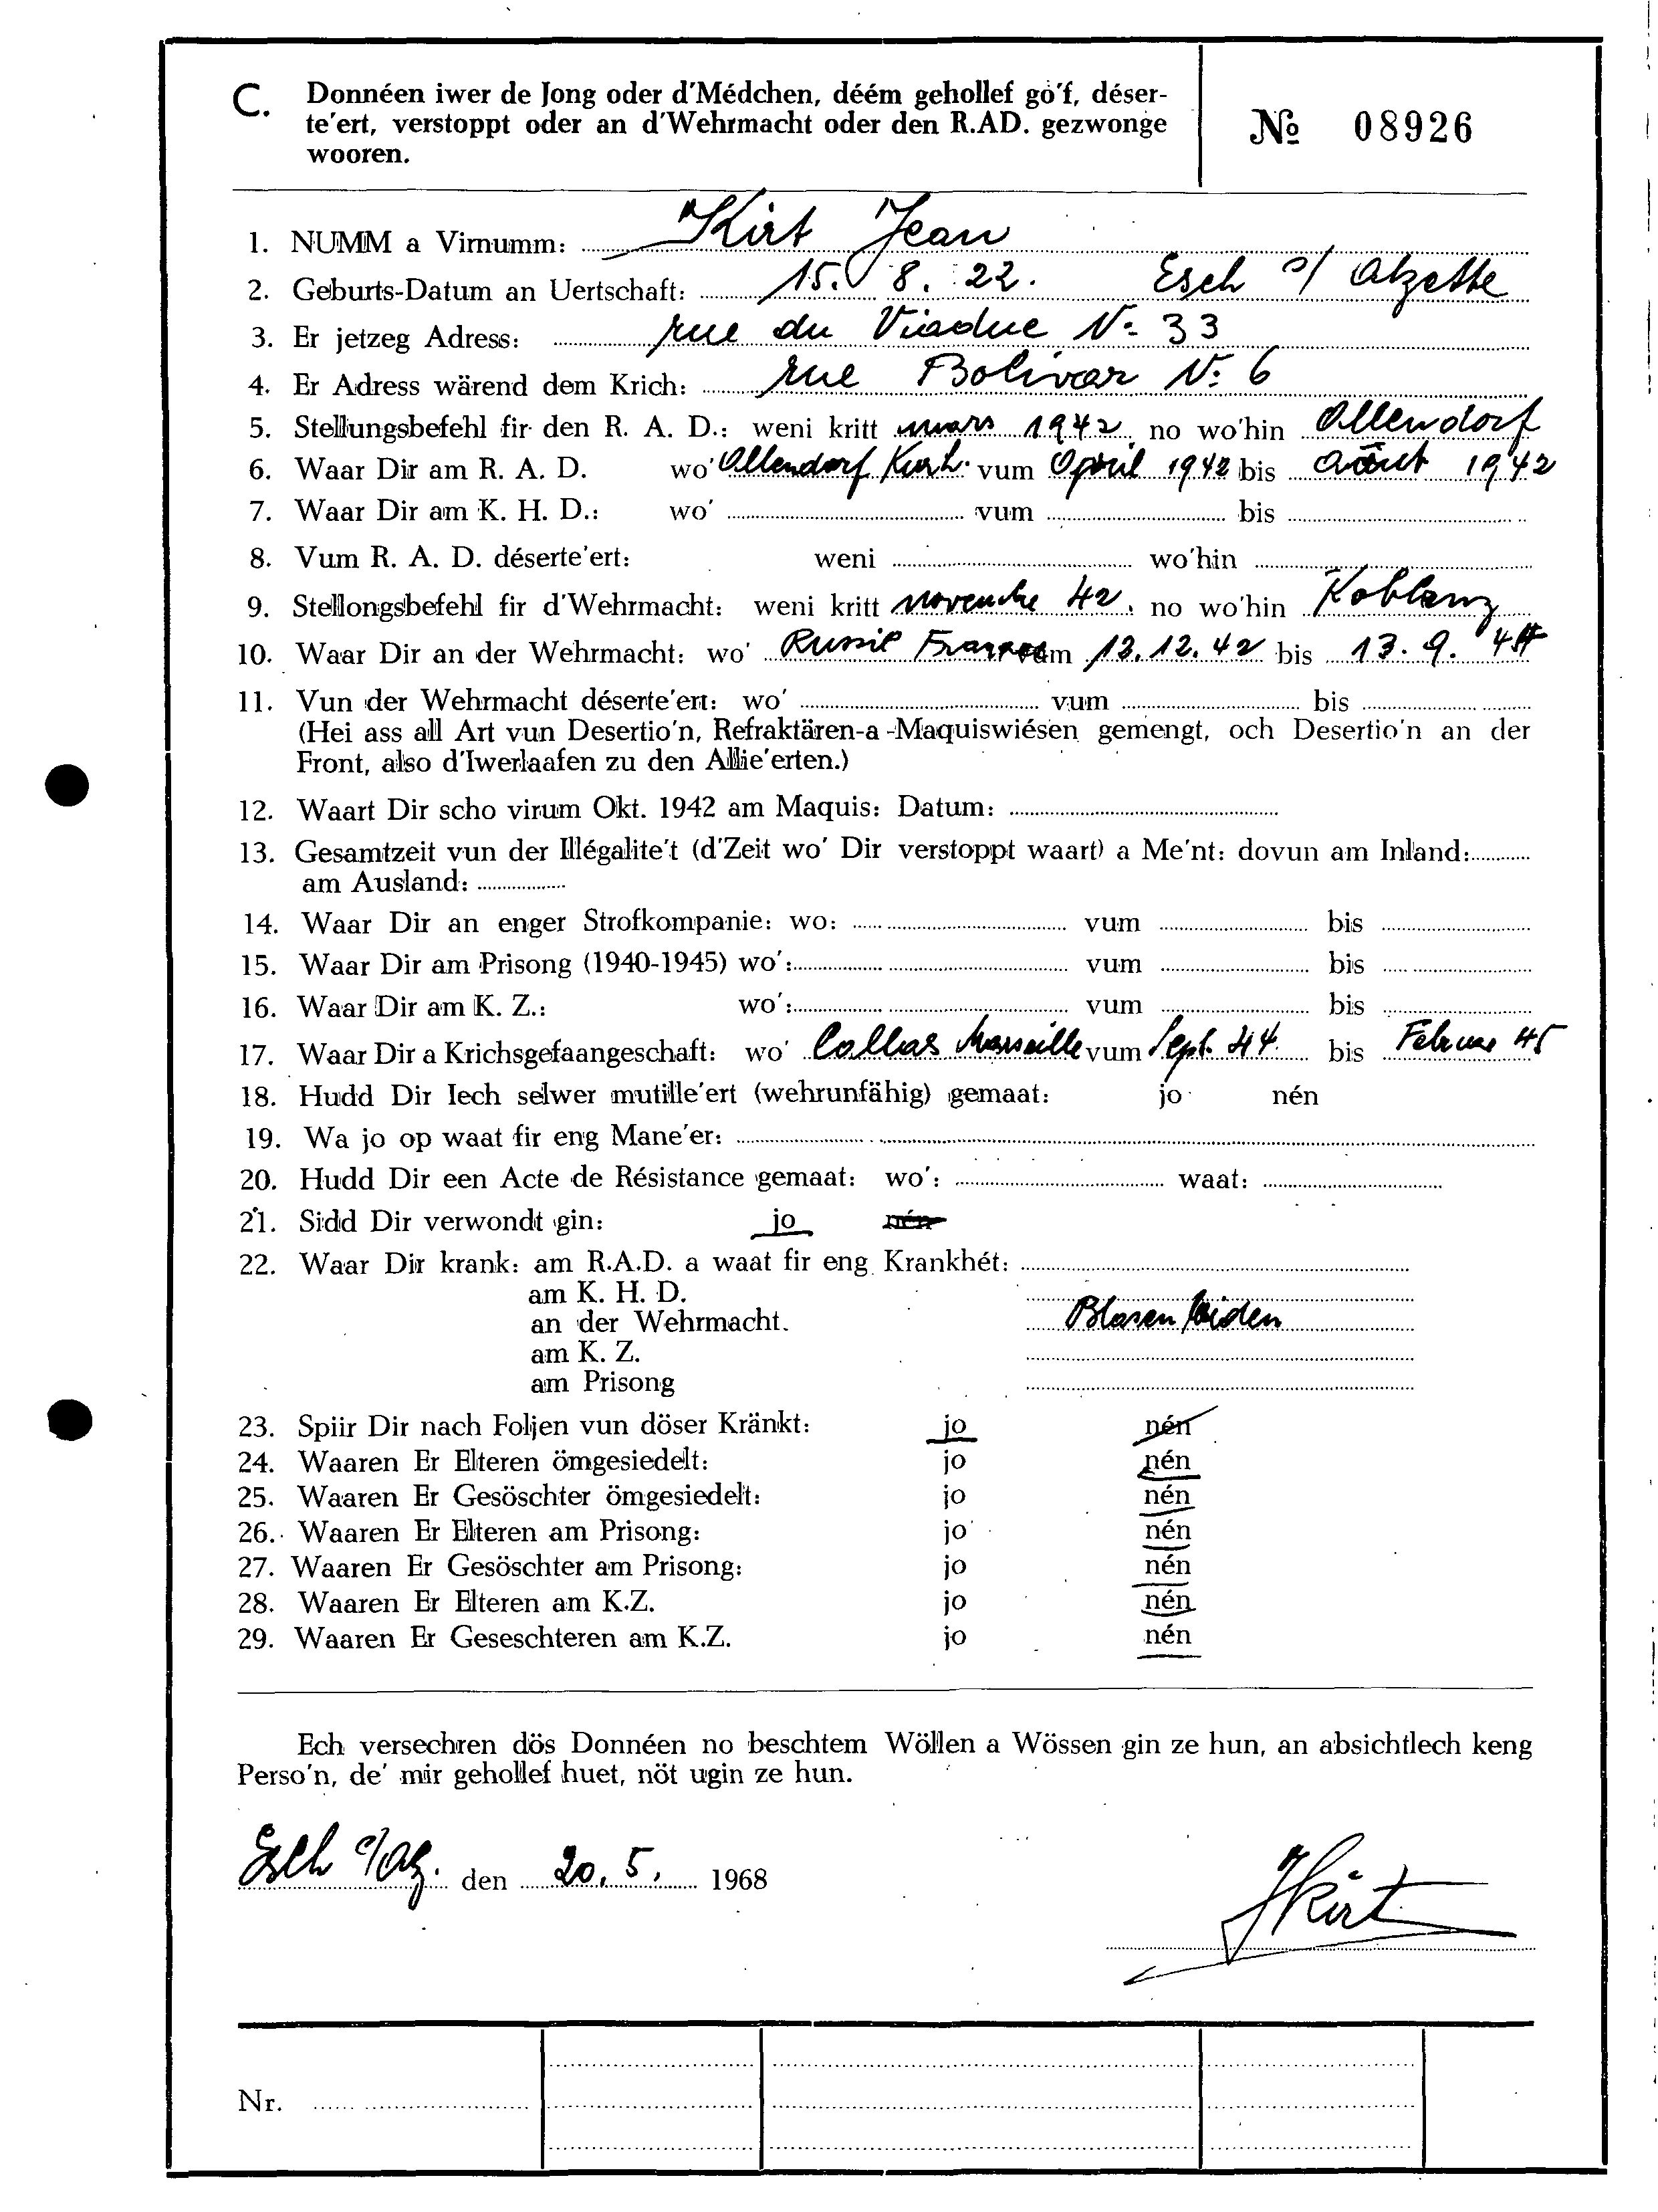 C. Donnéen iwer de Jong oder d'Médchen, déém gehollef gö'f, déser-
te'ert, verstoppt oder an d'Wehrmacht oder den R.AD. gezwonge
wooren.
№ 08926
1. NUMM a Virnumm: Kirt Jean
2. Geburts-Datum an Uertschaft: 15. 8. 22. Esch s/ Alzette
3. Er jetzeg Adress: rue du Viaduc N: 33
4. Er Adress wärend dem Krich: rue Bolivar N: 6
5. Stellungsbefehl fir den R. A. D.: weni kritt mars 1942, no wo'hin Allendorf
6. Waar Dir am R. A. D. wo' Allendorf vum April 1942 bis août 1942
7. Waar Dir am K. H. D.: wo' vum bis
8. Vum R. A. D. déserte'ert: weni wo'hin
9. Stellongsbefehl fir d'Wehrmacht: weni kritt 42, no wo'hin Koblenz
10. Waar Dir an der Wehrmacht: wo' Russie vum 12.12.42 bis 13. 9. 44
11. Vun der Wehrmacht déserte'ert: wo' vum bis
(Hei ass all Art vun Desertio'n, Refraktären-a-Maquiswiésen gemengt, och Desertio'n an der
Front, also d'Iwerlaafen zu den Allie'erten.)
12. Waart Dir scho virum Okt. 1942 am Maquis: Datum:
13. Gesamtzeit vun der Illégalite't (d'Zeit wo' Dir verstoppt waart) a Me'nt: dovun am Inland:
am Ausland:
14. Waar Dir an enger Strofkompanie: wo: vum bis
15. Waar Dir am Prisong (1940-1945) wo': vum bis
16. Waar Dir am K. Z.: wo': vum bis
17. Waar Dir a Krichsgefaangeschaft: wo' Marseille vum Sept. 44 bis Februar 45
18. Hudd Dir Iech selwer mutille'ert (wehrunfähig) gemaat: jo nén
19. Wa jo op waat fir eng Mane'er:
20. Hudd Dir een Acte de Résistance gemaat: wo': waat:
21. Sidd Dir verwondt gin: jo nén
22. Waar Dir krank: am R.A.D. a waat fir eng Krankhét:
am K. H. D.
an der Wehrmacht. Blasenleiden
am K. Z.
am Prisong
23. Spiir Dir nach Foljen vun döser Kränkt: jo nén
24. Waaren Er Elteren ömgesiedelt: jo nén
25. Waaren Er Gesöschter ömgesiedelt: jo nén
26. Waaren Er Elteren am Prisong: jo nén
27. Waaren Er Gesöschter am Prisong: jo nén
28. Waaren Er Elteren am K.Z. jo nén
29. Waaren Er Geseschteren am K.Z. jo nén
Ech versechren dös Donnéen no beschtem Wöllen a Wössen gin ze hun, an absichtlech keng
Perso'n, de' mir gehollef huet, nöt ugin ze hun.
Esch s/Alz. den 20. 5. 1968
JKirt
Nr.